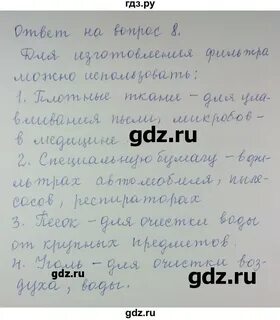 гдз.ру
Ответ на вопрос 8.
Для изготовления фильтра
можно использовать:
1. Плотные ткани – для ула-
вливания пыли, микробов –
в медицине
gdz.ru
2. Специальную бумагу – в фи-
льтрах автомобиля, пыле-
сосов, респираторах
3. Песок – для очистки воды
от крупных предметов.
gdz.ru
4. Уголь – для очистки воз-
духа, воды.
gdz.ru